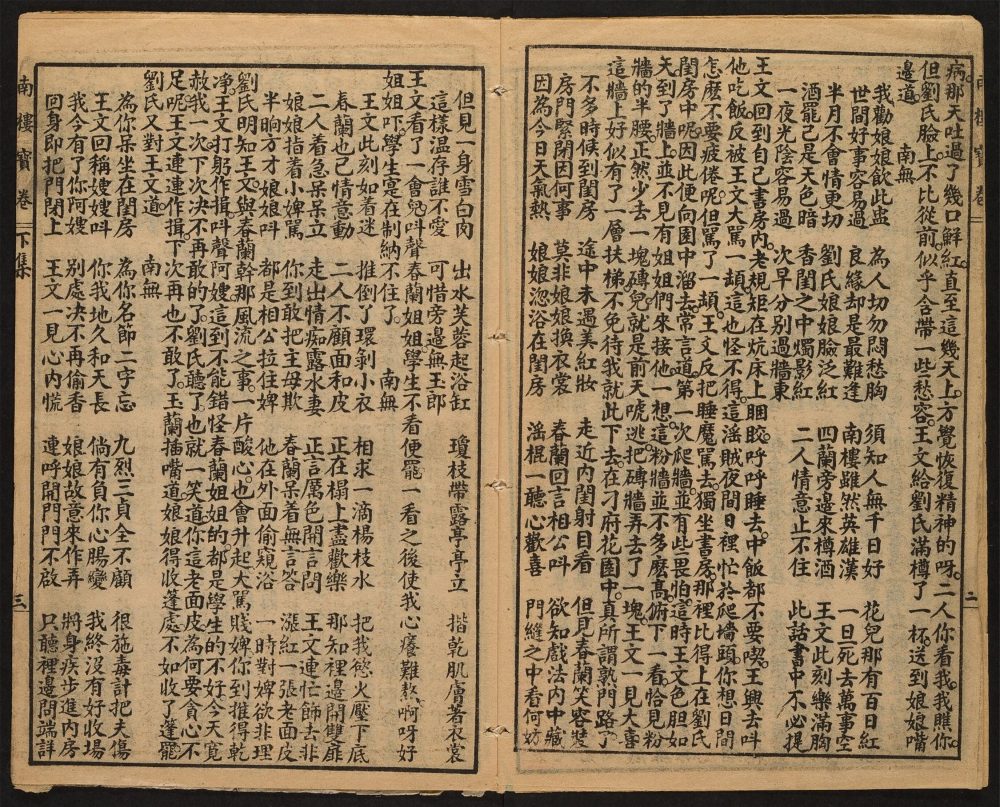 病。那天吐過了幾口鮮紅。直至這幾天上。方覺恢復精神的呀。二人你看我。我瞧你。
但劉氏臉上不比從前。似乎含帶一些愁容。王文給劉氏滿樽了一杯。送到娘娘嘴
邊道。 南無
我勸娘娘飲此盅 為人切勿悶愁胸 須知人無千日好 花兒那有百日紅
世間好事容易過 良緣却是最難逢 南樓雖然英雄漢 一旦死去萬事空
半月不會情更切 劉氏娘娘臉泛紅 四蘭旁邊來樽酒 王文此刻樂滿胸
酒罷已是天色暗 香閨之中燭影紅 二人情意止不住 此話書中不必提
一夜光陰容易過 次早分別過牆東
王文回到自己書房內。老規矩在炕床上睏。呼呼睡去。中飯都不要喫。王興去呌
他吃飯。反被王文大罵一頓。這也怪不得。這淫賊夜間日裡忙於爬墻頭。你想日間
怎麽不要疲倦呢。但罵了一頓。王文反把睡魔罵去。獨坐書房。那裡比得上在劉氏
閨房中呢。因此便向園中溜去。常言道。第一次爬牆。並有些畏怕。這時王文色胆如
天。到了牆上。並不見有姐姐們來接他。一想。這粉牆並不多麽高。俯下一看。恰見粉
牆的半腰。正然少去一塊磚兒。就是前天唬逃。把磚牆弄去了一塊。王文一見大喜
這牆上好似有了一層扶梯。不免待我就此下去。在刁府花園中。真所謂熟門路了
不多時候到閨房 途中未遇美紅妝 走近內閨射目看 但見春蘭笑容裝
房門緊閉因何事 莫非娘娘換衣裳 春蘭回言相公呌 欲知戲法內中藏
因為今日天氣熱 娘娘浴在閨房 淫棍一聽心歡喜 門縫之中看何妨
二
南樓寶卷 下集 三
但見一身雪白肉 出水芙蓉起浴缸 瓊枝帶露亭亭立 揩乾肌膚著衣裳
這樣温存誰不愛 可惜旁邊無玉郎
王文看了一會。兒呌聲春蘭姐姐。學生不看便罷。一看之後。使我心癢難熬。啊呀好
姐姐吓。學生寔在制納不住了。 南無
王文此刻如着迷 推倒了環剝小衣 相求一滴楊枝水 把我慾火壓下底
春蘭也已情意動 二人不顧面和皮 正在榻上盡歡樂 那知裡邊開雙扉
二人着急呆呆立 走出情痴露水妻 正言厲色開言問 王文連忙飾去非
娘娘指着小婢罵 你到敢把主母欺 春蘭呆着無言答 漲紅一張老面皮
半晌方才娘娘呌 都是相公拉住婢 他在外面偷窺浴 一時對婢欲非理
劉氏明知王文與春蘭幹那風流之事。一片酸心。也會升起。大罵賤婢你到推得乾
凈。王文打躬作揖。呌聲阿嫂。這到不能錯怪春蘭姐姐的。都是學生的不好。今天寛
赦我一次。下次决不再敢的了。劉氏聽了。也就一笑道。你這老面皮。為何要貪心不
足呢。王文連連作揖。下次再也不敢了。玉蘭插嘴道。娘娘得收蓬處。不如收了蓬罷
劉氏又對王文道。 南無
為你呆坐在閨房 為你名節二字忘 九烈三貞全不顧 很施毒計把夫傷
王文回稱嫂嫂呌 你我地久和天長 倘有負你心腸變 我終没有好收場
我今有了你阿嫂 别處决不再偷香 娘娘故意來作弄 將身疾步進內房
回身即把門閉上 王文一見心內慌 連呼開門門不啟 只聽裡邊問端詳